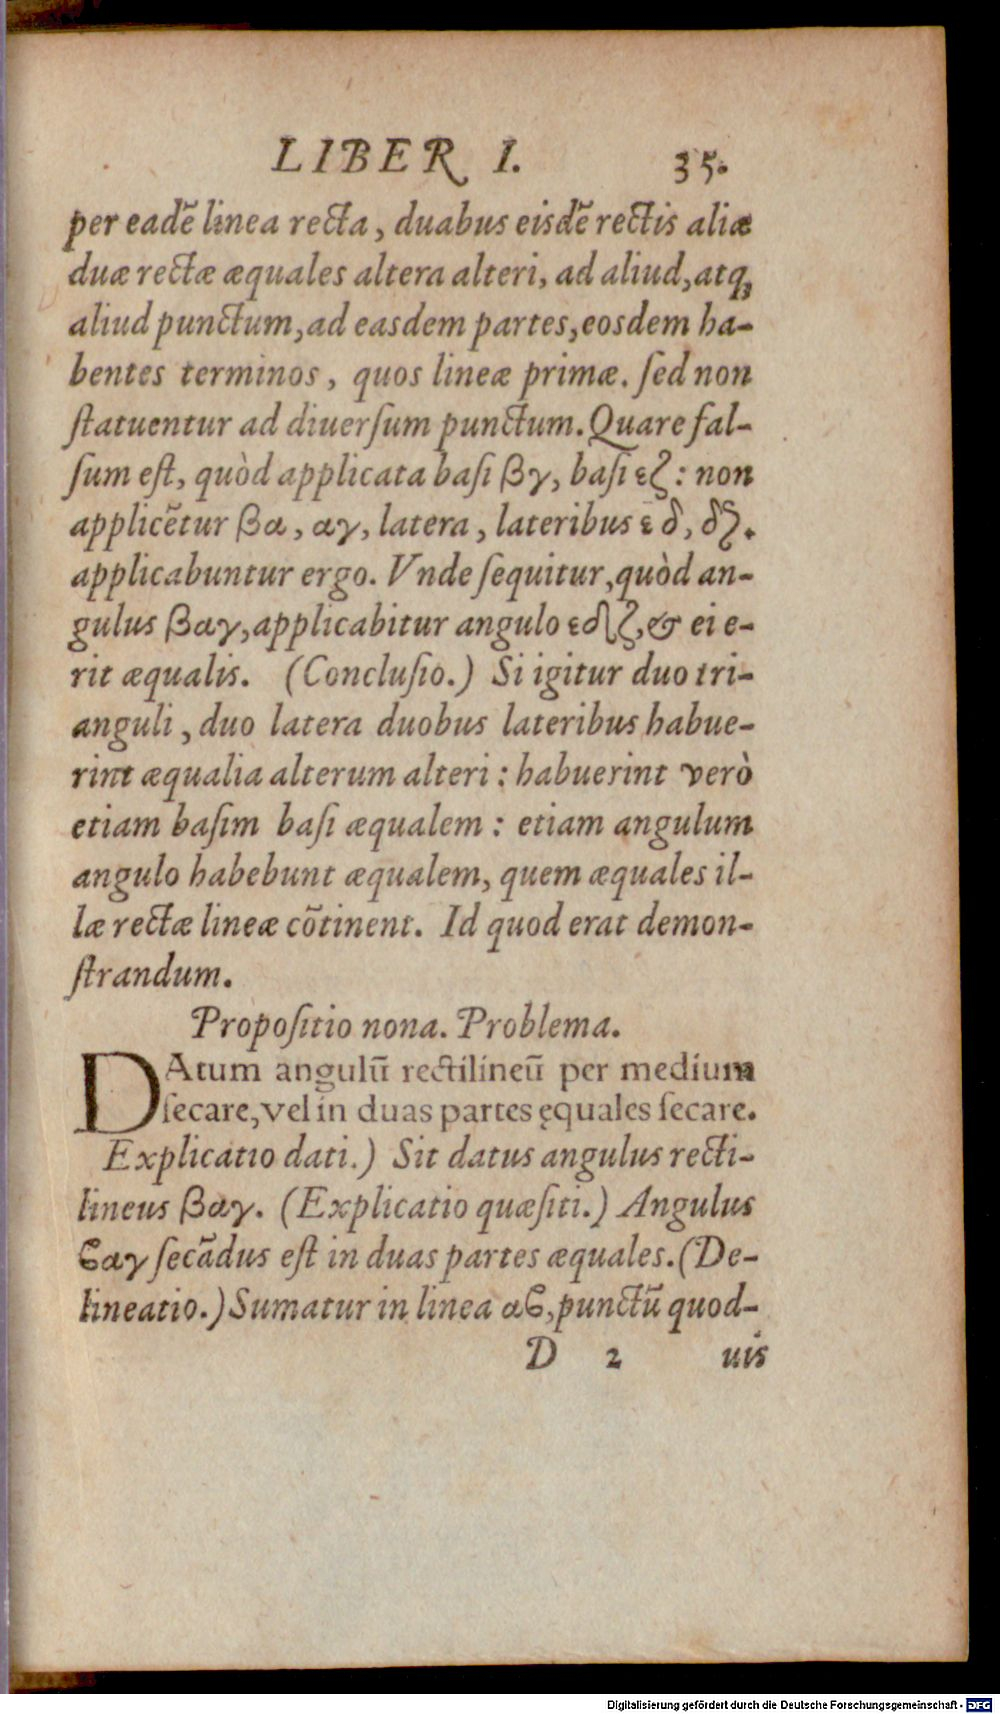 LIBER I. 35.
per eadē linea recta, duabus eisdē rectis aliæ
duæ rectæ æquales altera alteri, ad aliud, atq;
aliud punctum, ad easdem partes, eosdem ha-
bentes terminos, quos lineæ primæ. ſed non
ſtatuentur ad diuerſum punctum. Quare fal-
ſum eſt, quòd applicata baſi βγ, baſi εζ: non
applicētur βα, αγ, latera, lateribus εδ, δζ.
applicabuntur ergo. Vnde ſequitur, quòd an-
gulus βαγ, applicabitur angulo εδζ, & ei e-
rit æqualis. (Concluſio.) Si igitur duo tri-
anguli, duo latera duobus lateribus habue-
rint æqualia alterum alteri: habuerint verò
etiam baſim baſi æqualem: etiam angulum
angulo habebunt æqualem, quem æquales il-
læ rectæ lineæ cōtinent. Id quod erat demon-
ſtrandum.
Propoſitio nona. Problema.
DAtum angulū rectilineū per medium
ſecare, vel in duas partes ęquales ſecare.
Explicatio dati.) Sit datus angulus recti-
lineus βαγ. (Explicatio quæſiti.) Angulus
ϐαγ ſecādus eſt in duas partes æquales. (De-
lineatio.) Sumatur in linea αϐ, punctū quod-
D 2 uis
Digitalisierung gefördert durch die Deutsche Forschungsgemeinschaft - DFG